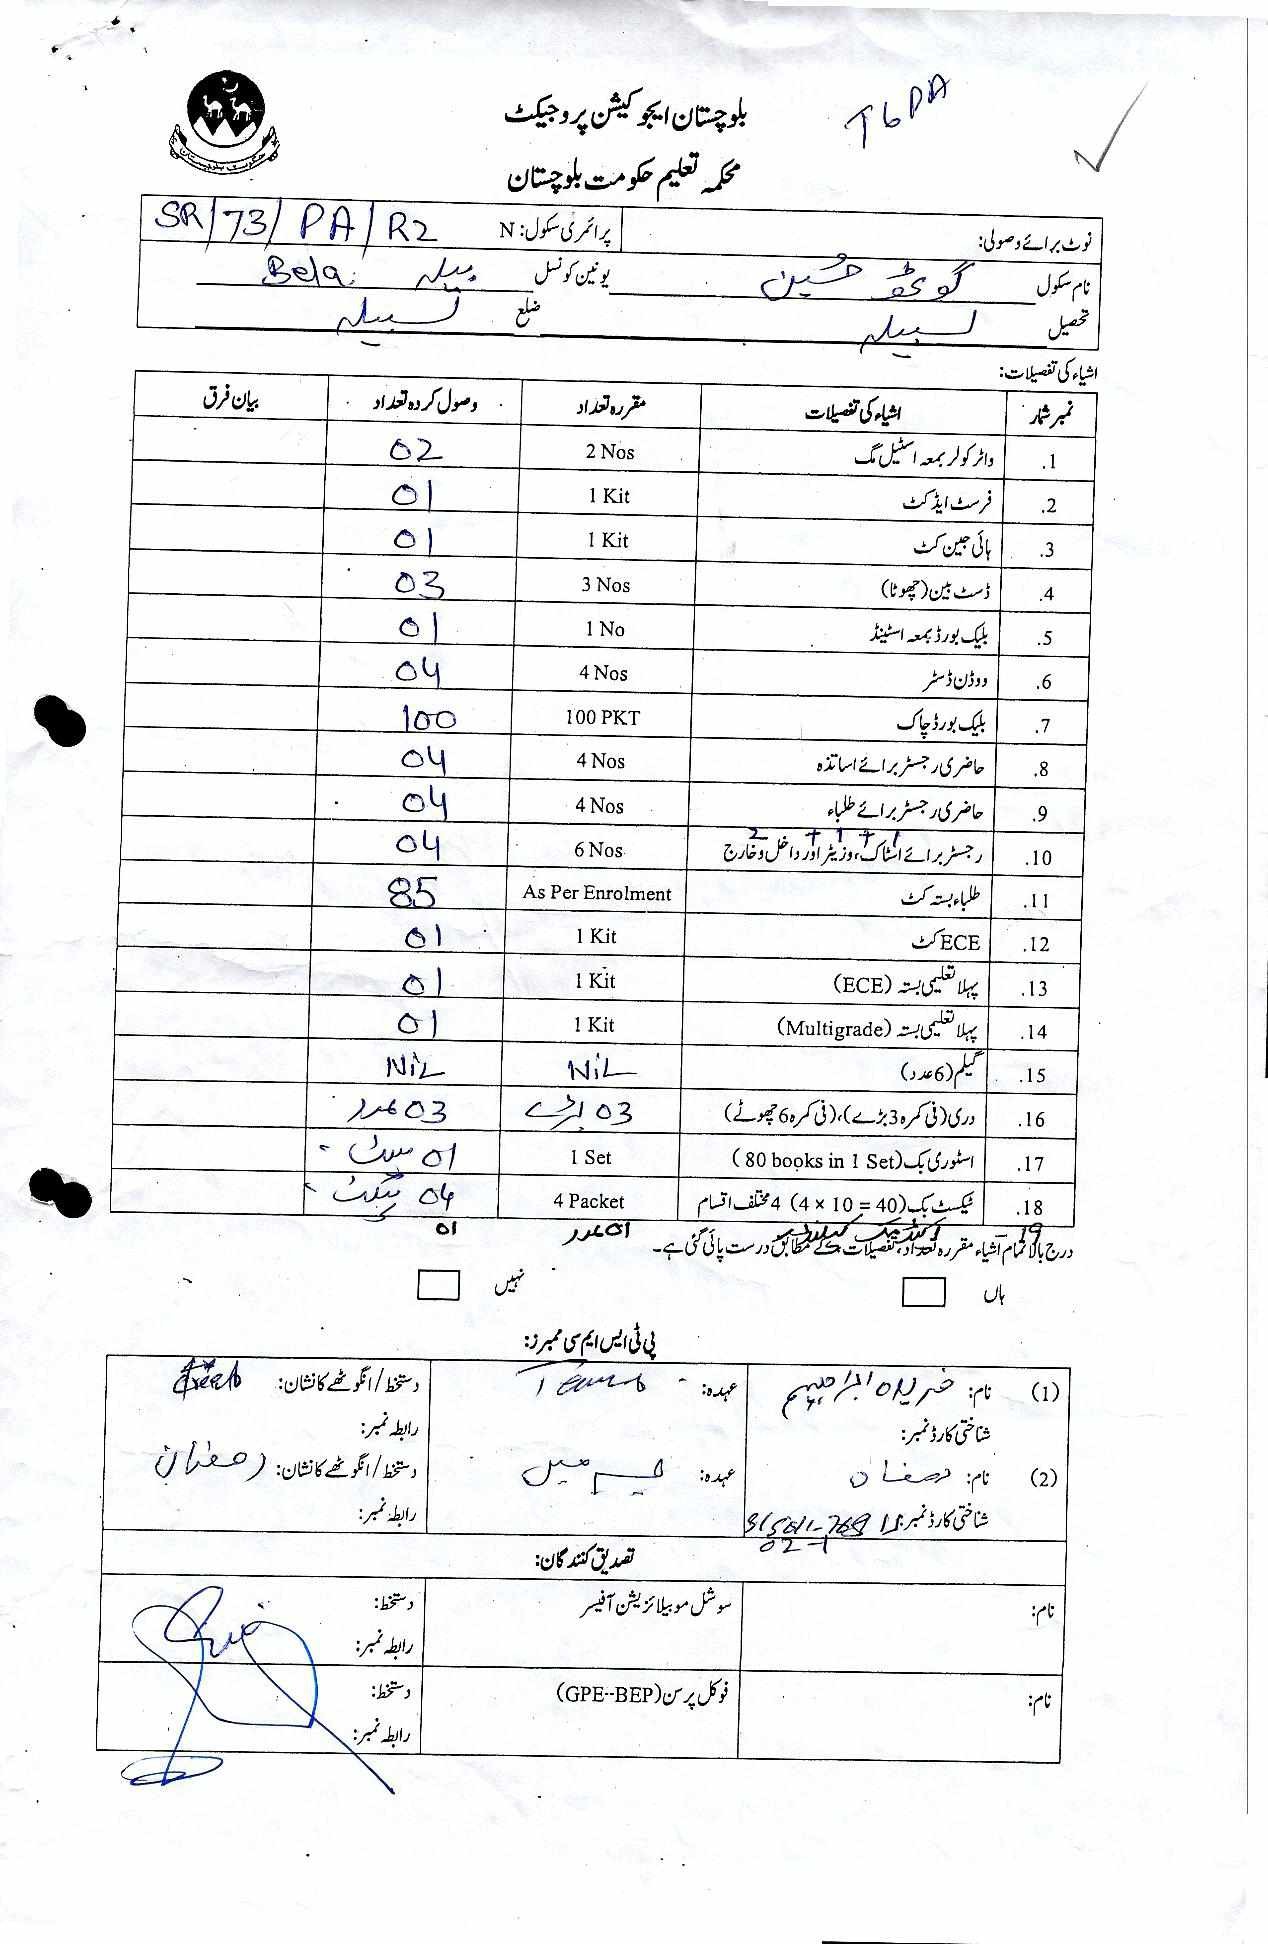 بلوچستان ایجوکیشن پروجیکٹ
T6 PA
محکمہ تعلیم حکومت بلوچستان
حکومت بلوچستان
نوٹ برائے وصولی: پرائمری سکول: N SR/73/PA/R2
نام سکول گوٹھ حسین یونین کونسل بیلہ Bela
تحصیل لسبیلہ ضلع لسبیلہ
اشیاء کی تفصیلات:
نمبر شمار اشیاء کی تفصیلات مقررہ تعداد وصول کردہ تعداد بیان فرق
1. واٹر کولر بمعہ اسٹیل مگ 2 Nos 02
2. فرسٹ ایڈ کٹ 1 Kit 01
3. ہائی جین کٹ 1 Kit 01
4. ڈسٹ بین (چھوٹا) 3 Nos 03
5. بلیک بورڈ بمعہ اسٹینڈ 1 No 01
6. ووڈن ڈسٹر 4 Nos 04
7. بلیک بورڈ چاک 100 PKT 100
8. حاضری رجسٹر برائے اساتذہ 4 Nos 04
9. حاضری رجسٹر برائے طلباء 4 Nos 04
2 + 1 + 1
10. رجسٹر برائے اسٹاک، وزیٹر اور داخل و خارج 6 Nos 04
11. طلباء بستہ کٹ As Per Enrolment 85
12. ECE کٹ 1 Kit 01
13. پہلا تعلیمی بستہ (ECE) 1 Kit 01
14. پہلا تعلیمی بستہ (Multigrade) 1 Kit 01
15. گیلم (6 عدد) NiL NiL
16. دری (فی کمرہ 3 بڑے)، (فی کمرہ 6 چھوٹے) 03 بڑے 03 عدد
17. اسٹوری بک (80 books in 1 Set) 1 Set 01 سیٹ
18. ٹیکسٹ بک (4 × 10 = 40) 4 مختلف اقسام 4 Packet 04 پیکٹ
19 01 عدد 01
درج بالا تمام اشیاء مقررہ تعداد، تفصیلات کے مطابق درست پائی گئی ہے۔
ہاں نہیں
پی ٹی ایس ایم سی ممبرز:
(1) نام: ابراہیم عہدہ: دستخط/انگوٹھے کا نشان:
شناختی کارڈ نمبر: رابطہ نمبر:
(2) نام: رمضان عہدہ: چیئرمین دستخط/انگوٹھے کا نشان: رمضان
شناختی کارڈ نمبر: رابطہ نمبر:
تصدیق کنندگان:
نام: سوشل موبیلائزیشن آفیسر دستخط:
رابطہ نمبر:
نام: فوکل پرسن (GPE--BEP) دستخط:
رابطہ نمبر: